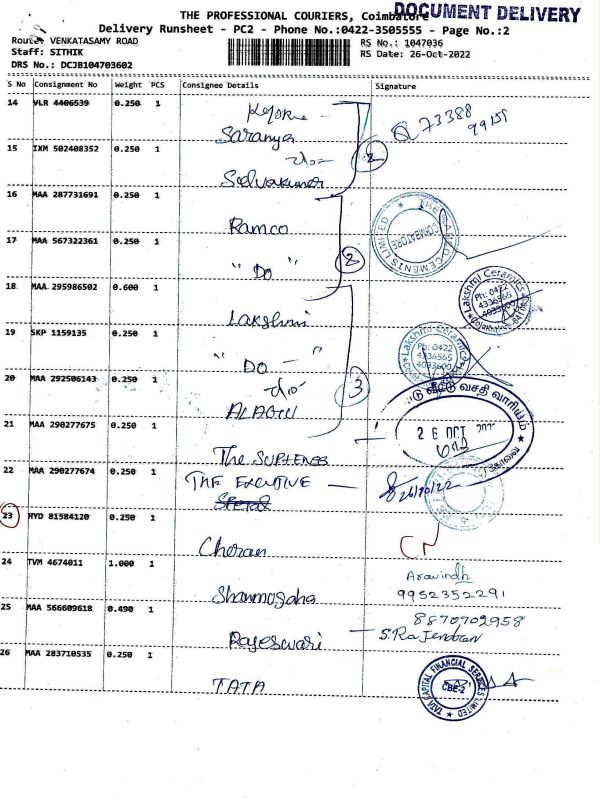 DOCUMENT DELIVERY
THE PROFESSIONAL COURIERS, Coimbatore
Delivery Runsheet - PC2 - Phone No.:0422-3505555 - Page No.:2
Route: VENKATASAMY ROAD
RS No.: 1047036
Staff: SITHIK
RS Date: 26-Oct-2022
DRS No.: DCJB104703602
S No Consignment No Weight PCS Consignee Details Signature
14 VLR 4406539 0.250 1
73388
99151
Saranya
15 IXM 502408352 0.250 1
2
Selvakumar
16 MAA 287731691 0.250 1
Ramco
17 MAA 567322361 0.250 1
COIMBATORE
" Do "
2
18 MAA 295986502 0.600 1
Lakshmi
Lakshmi Ceramics
Ph: 0422
4336565
4033600
19 SKP 1159135 0.250 1
" Do - "
Lakshmi Ceramics
Ph: 0422
4336565
4033600
20 MAA 292506143 0.250 1
3
ALAGU
வீட்டு வசதி வாரியம்
21 MAA 290277675 0.250 1
26 OCT
The
22 MAA 290277674 0.250 1
THE EXECUTIVE
26/10/22
23 HYD 81584120 0.250 1
Cheran
CN
24 TVM 4674011 1.000 1
Aravindh
9952352291
Shanmugaha
25 MAA 566609618 0.490 1
8870702958
Rajeswari - S.Rajendran
26 MAA 283710535 0.250 1
TATA
TATA CAPITAL FINANCIAL SERVICES LIMITED
CBE-2